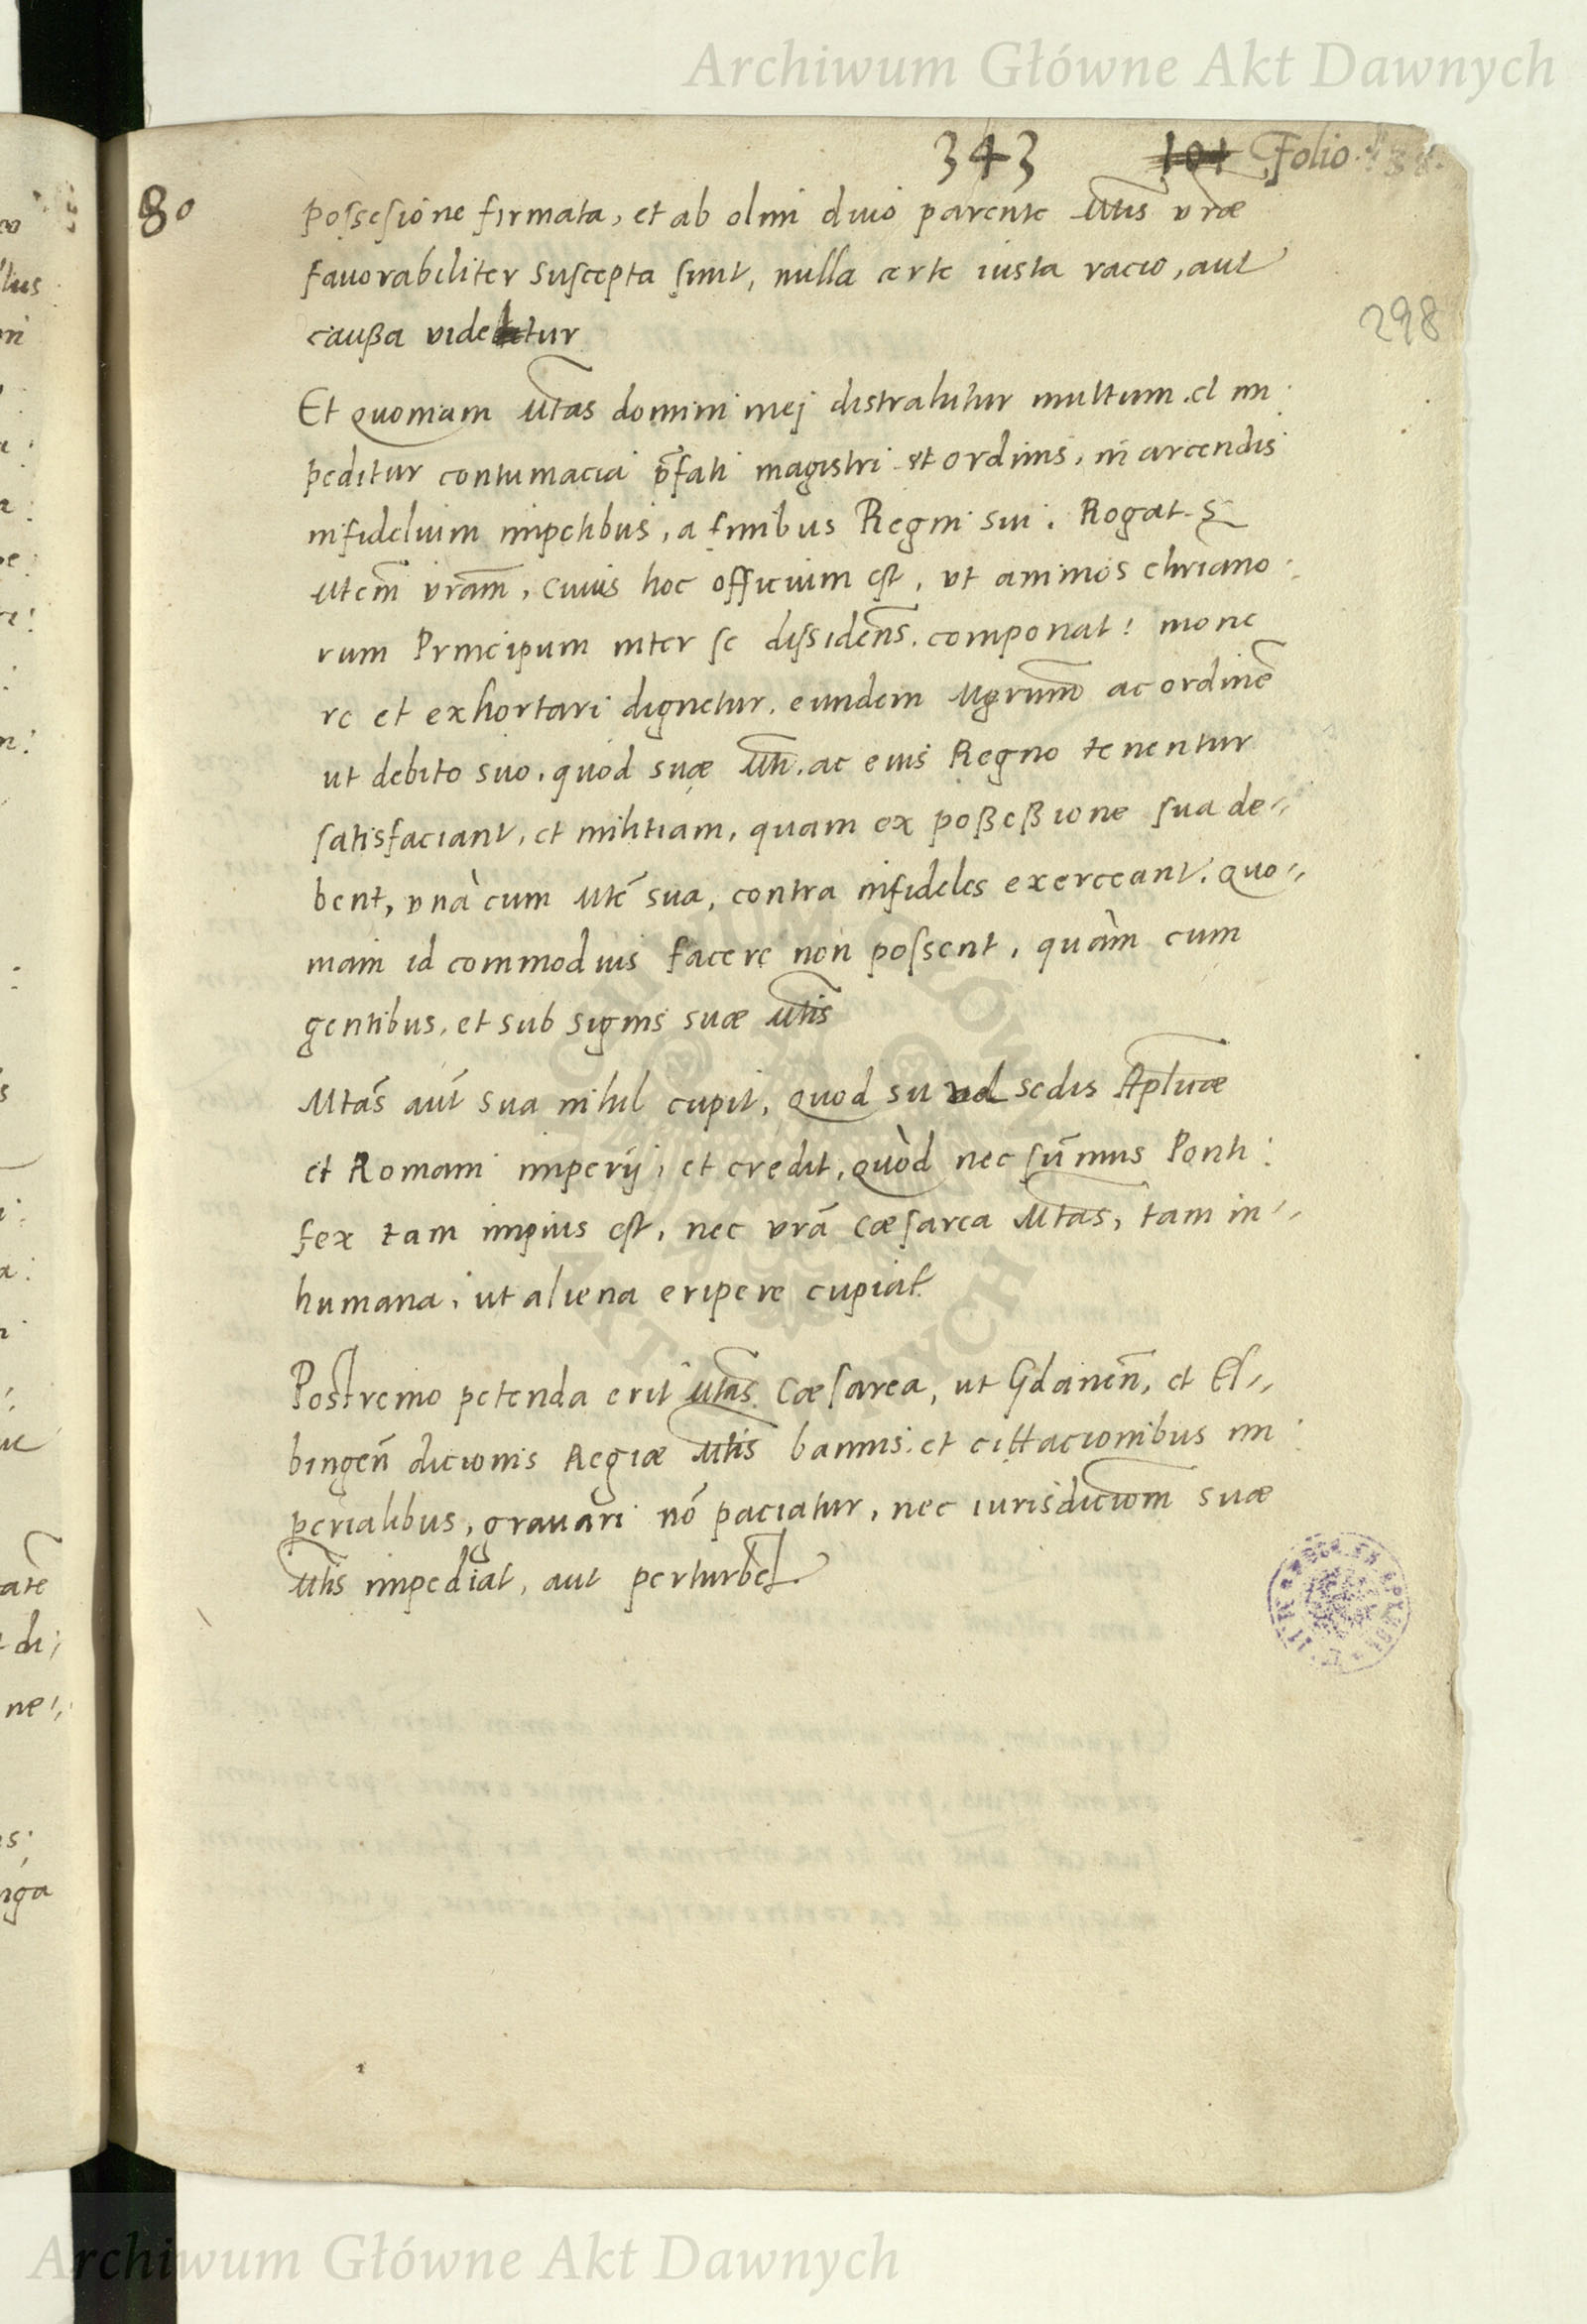 Archiwum Główne Akt Dawnych
343 101 Folio
80
possesione firmata, et ab olim divo parente Mtis vrae
favorabiliter suscepta sunt, nulla certe iusta racio, aut
caußa videtur
298
Et quoniam Mtas domini mej distrahitur multum et im:
peditur contumacia pfati magistri et ordinis, in arcendis
infidelium impetibus, a finibus Regni sui. Rogat S
Mtem vram, cuius hoc officium est, vt animos chriano:
rum Principum inter se dissidens componat: mone
re et exhortari dignetur, eundem Mgrum ac ordine
ut debito suo, quod suae Mti. ac eius Regno tenentur
satisfaciant, et militiam, quam ex poßeßione sua de,,
bent, vnà cum Mte sua, contra infideles exerceant. Quo,,
niam id commodius facere non possent, quàm cum
gentibus, et sub signis suae Mtis
Mtas aut sua nihil cupit, quod sit vel sedis Aplicae
et Romani imperij, et credit, quòd nec sumus Ponti:
fex tam impius est, nec vra Caesarea Mtas, tam in,,
humana, ut aliena eripere cupiat
Postremo petenda erit Mtas Caesarea, ut Gdanen, et El,,
bingen dicionis Regiae Mtis bannis et cittacionibus im:
perialibus, gravari no paciatur, nec iurisdiciom suae
Mtis impediat, aut perturbet.
Archiwum Główne Akt Dawnych